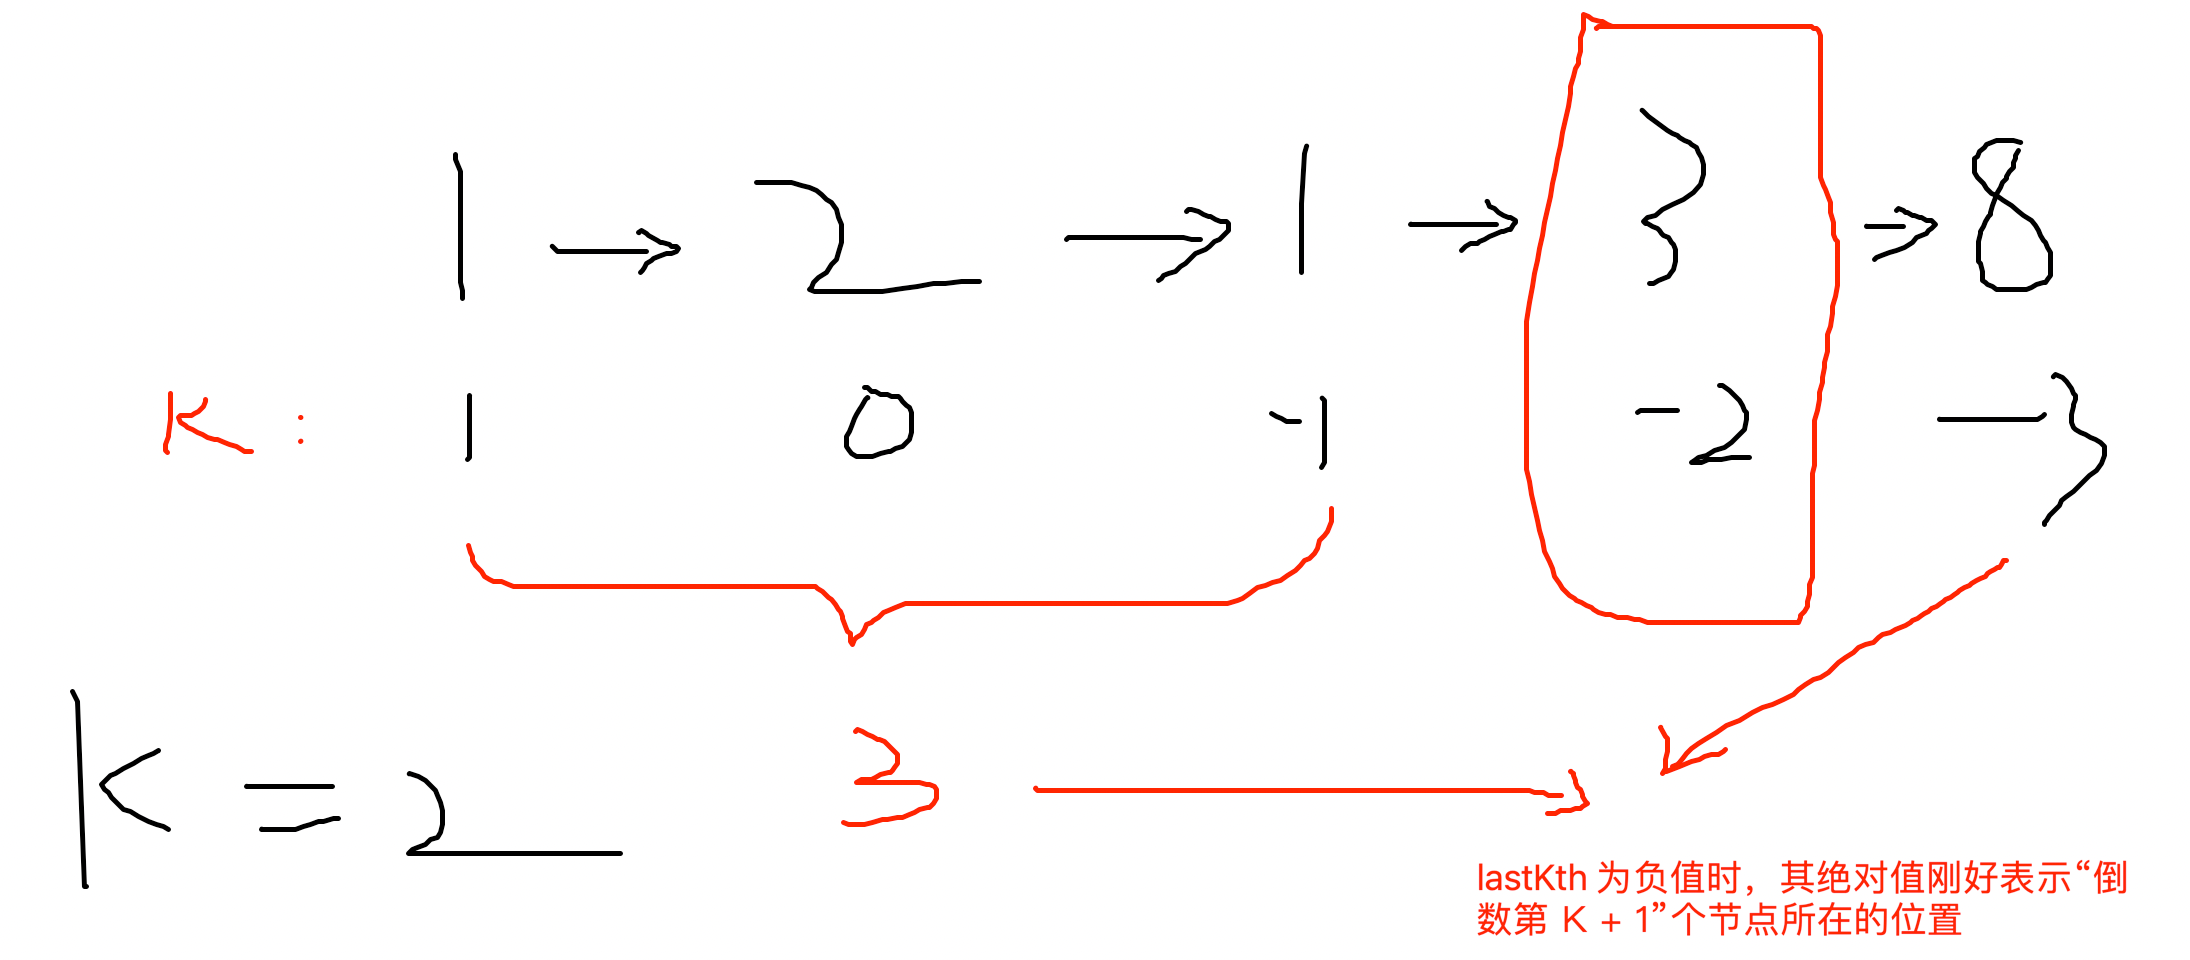 1 → 2 → 1 → 3 → 8
K : 1 0 -1 -2 -3
K = 2 3
lastKth 为负值时，其绝对值刚好表示“倒
数第 K + 1”个节点所在的位置